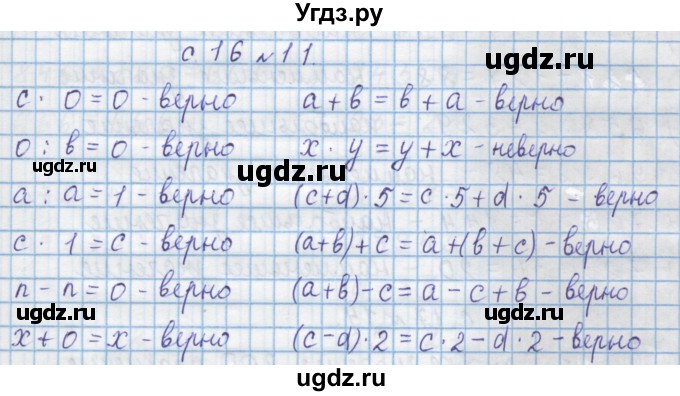 Угдз.ру
с 16 № 11
с · 0 = 0 - верно
a + в = в + a - верно
0 : в = 0 - верно
x · y = y + x - неверно
a : a = 1 - верно
(c+d) · 5 = c · 5 + d · 5 - верно
c · 1 = c - верно
(a+в) + c = a + (в + c) - верно
n - n = 0 - верно
(a+в) - c = a - c + в - верно
x + 0 = x - верно
(c - d) · 2 = c · 2 - d · 2 - верно
ugdz.ru
ugdz.ru
ugdz.ru
ugdz.ru
ugdz.ru
ugdz.ru
Угдз.ру